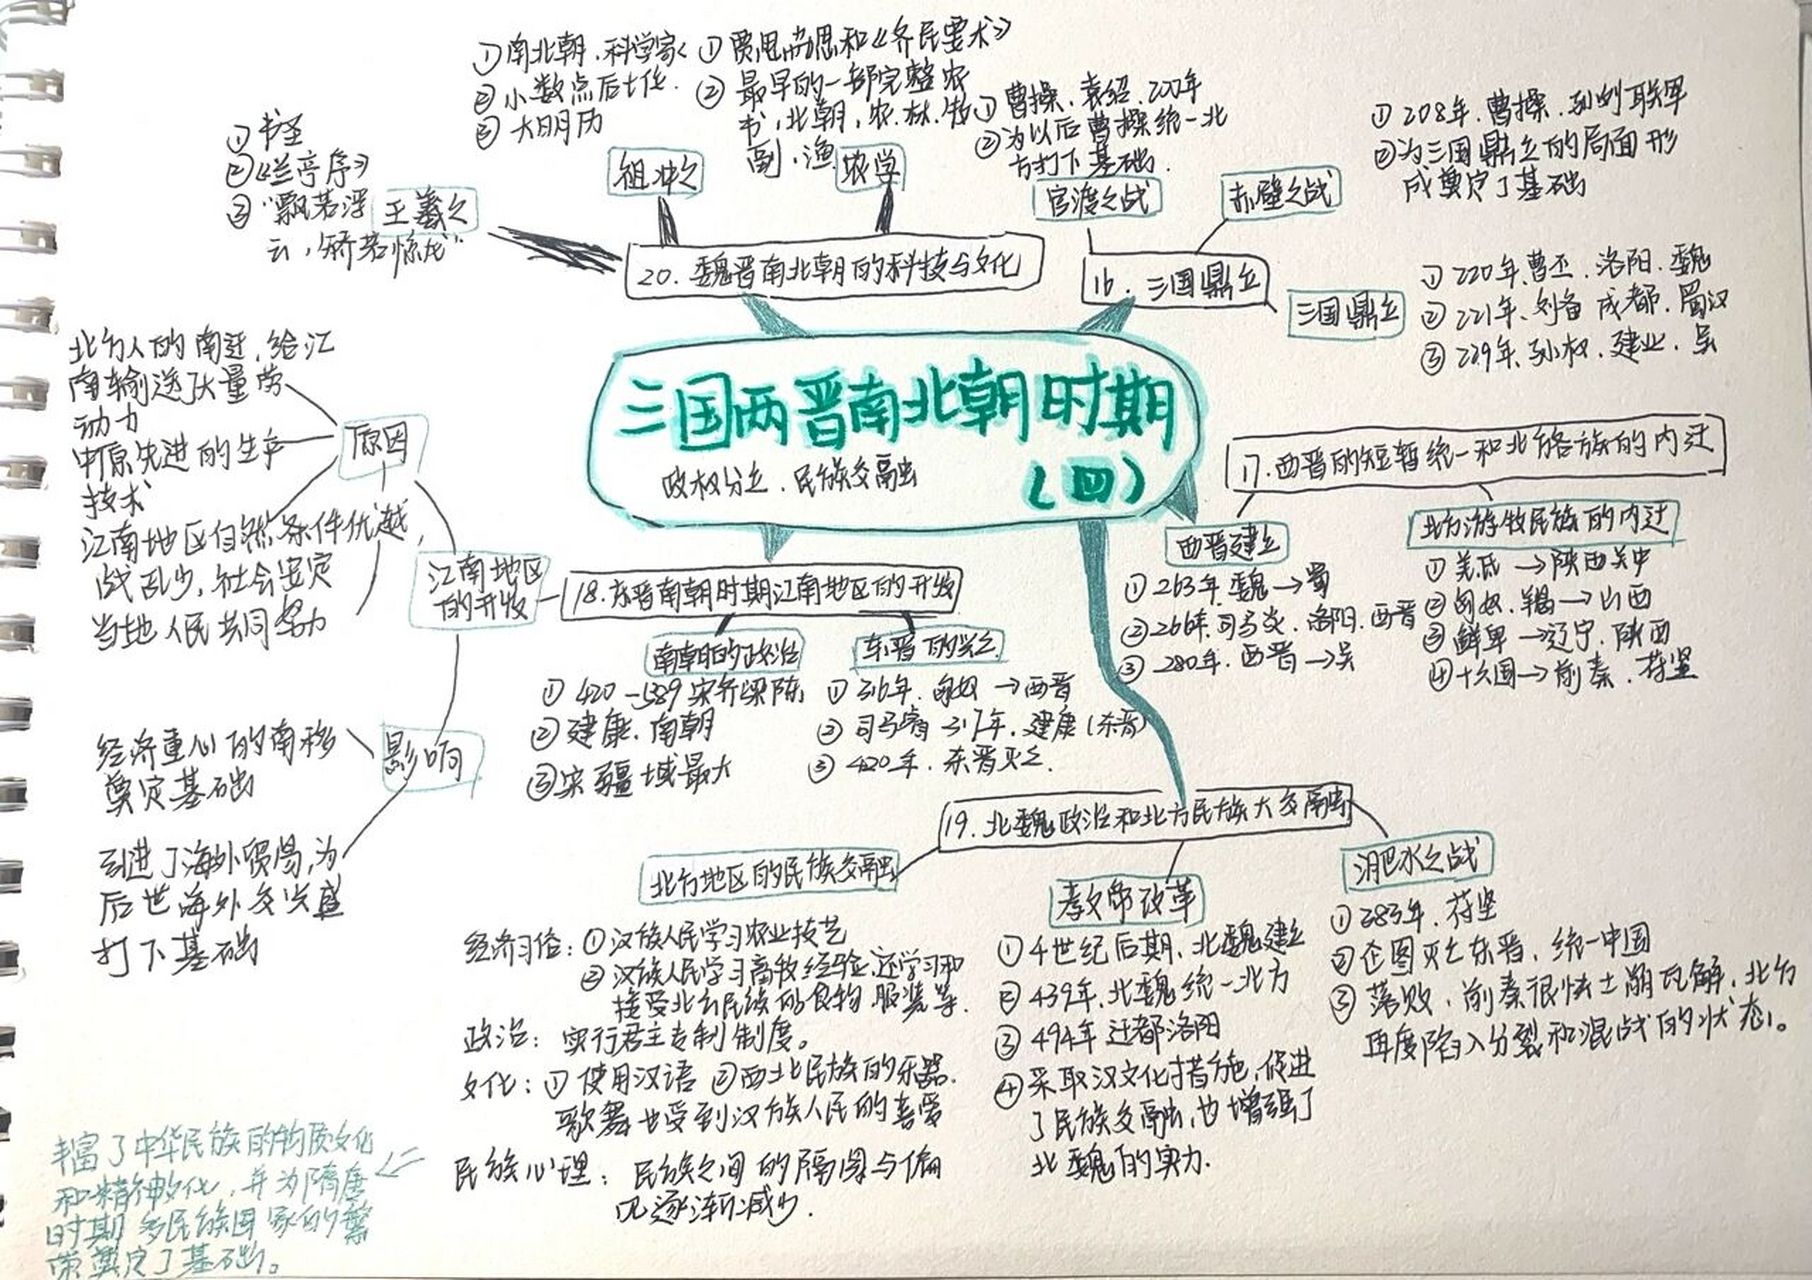 三国两晋南北朝时期
(四)
政权分立、民族交融
16.三国鼎立
官渡之战
①曹操、袁绍、200年
②为以后曹操统一北
方打下基础.
赤壁之战
①208年.曹操、孙刘联军
②为三国鼎立的局面形
成奠定了基础
三国鼎立
①220年.曹丕.洛阳.魏
②221年.刘备 成都.蜀汉
③229年.孙权.建业.吴
17.西晋的短暂统一和北方各族的内迁
西晋建立
①263年.魏→蜀
②266年.司马炎.洛阳.西晋
③280年.西晋→吴
北方游牧民族的内迁
①羌氐→陕西关中
②匈奴.羯→山西
③鲜卑→辽宁.陕西
④十六国→前秦.苻坚
18.东晋南朝时期江南地区的开发
东晋的兴亡
①316年.匈奴→西晋
②司马睿 317年.建康(东晋)
③420年.东晋灭亡.
南朝的政治
①420-589 宋齐梁陈
②建康.南朝
③宋疆域最大
江南地区
的开发
原因
北方人的南迁,给江
南输送了大量劳
动力
中原先进的生产
技术
江南地区自然条件优越,
战乱少,社会安定
当地人民共同努力
影响
经济重心的南移
奠定基础
引进了海外贸易,为
后世海外交兴盛
打下基础
19.北魏政治和北方民族大交融
淝水之战
①383年.苻坚
②企图灭亡东晋,统一中国
③落败,前秦很快土崩瓦解,北方
再度陷入分裂和混战的状态。
孝文帝改革
①4世纪后期,北魏建立
②439年.北魏统一北方
③494年 迁都洛阳
④采取汉文化措施,促进
了民族交融,也增强了
北魏的实力.
北方地区的民族交融
经济习俗:①汉族人民学习农业技艺
②汉族人民学习畜牧经验,还学习和
接受北方民族的食物 服装等.
政治:实行君主专制制度。
文化:①使用汉语 ②西北民族的乐器.
歌舞也受到汉族人民的喜爱
民族心理:民族之间的隔阂与偏
见逐渐减少.
丰富了中华民族的物质文化
和精神文化,并为隋唐
时期多民族国家的繁
荣奠定了基础。
20.魏晋南北朝的科技与文化
王羲之
①书圣
②《兰亭序》
③“飘若浮
云,矫若惊龙”
祖冲之
①南北朝.科学家
②小数点后七位.
③大明历
农学
①贾思勰和《齐民要术》
②最早的一部完整农
书,北朝,农.林.牧
副.渔